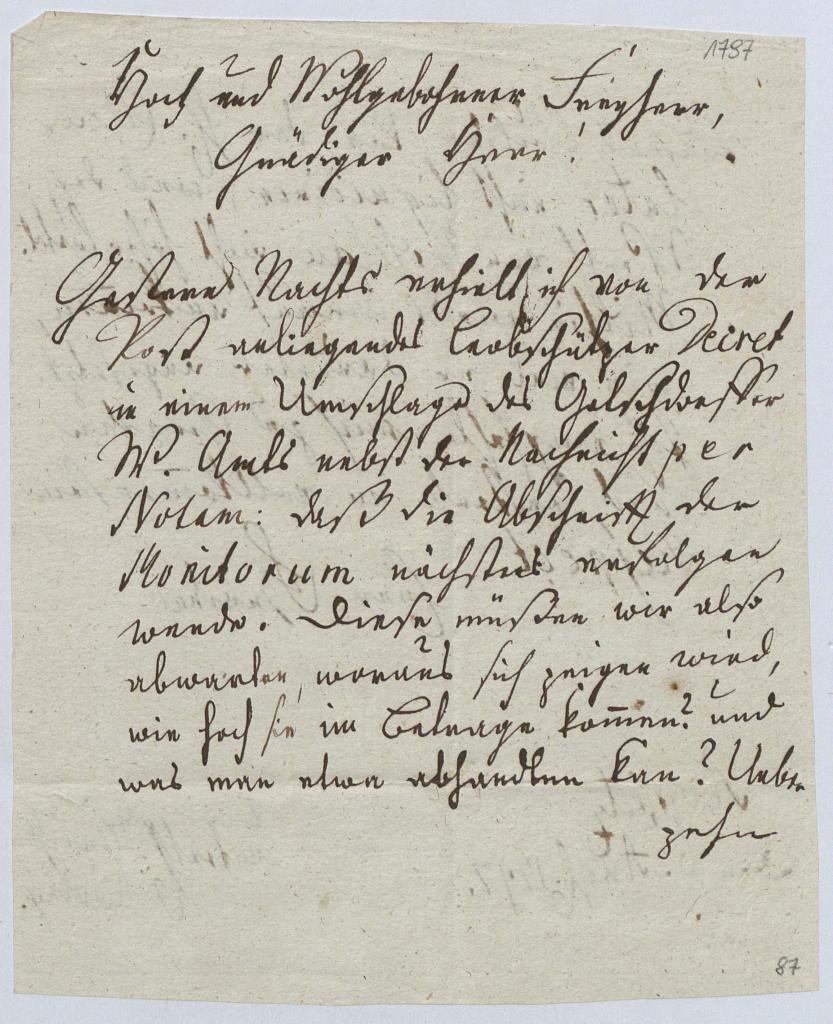 1797
Hoch und Wohlgebohrner Freyherr,
Gnädiger Herr!
Gestern Nachts erhielt ich von der
Post anliegendes Leobschützer Decret
in einem Umschlage des Gelschdorffer
W. Amts nebst der Nachricht per
Notam: daß die Abschrifft der
Monitorum nächstens erfolgen
werde. Diese müßen wir also
abwarten, woraus sich zeigen wird,
wie hoch sie im Betrage kommen? und
was man etwa abhandlen kan? Ueber
zehn
87